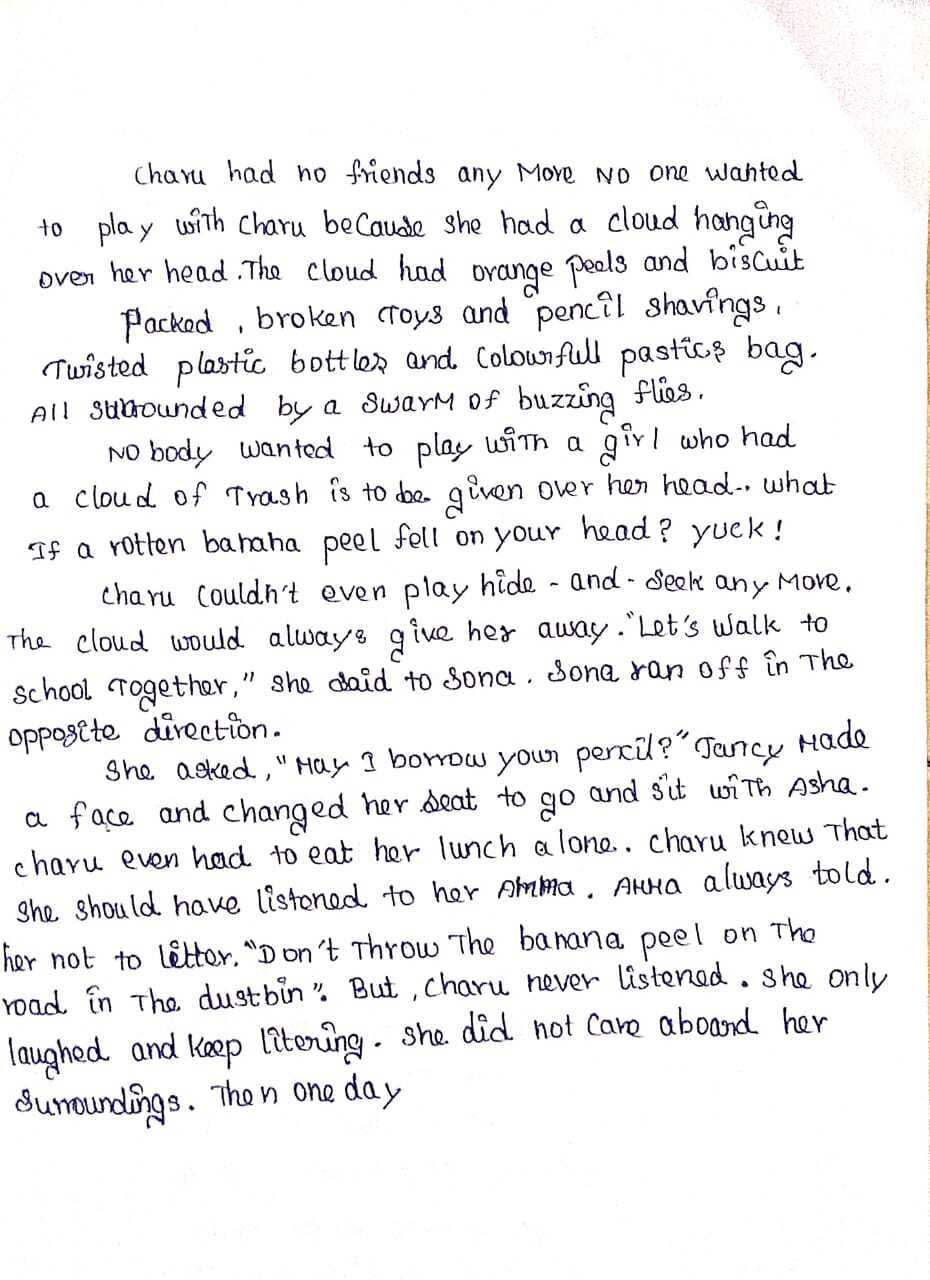 Charu had no friends any More No one wanted
to play with Charu because she had a cloud hanging
over her head. The cloud had orange peels and biscuit
Packed , broken Toys and pencil shavings,
Twisted plastic bottles and Colourfull pastics bag.
All surounded by a swarM of buzzing flies.
No body wanted to play with a girl who had
a cloud of Trash is to be given over her head.. what
If a rotten banana peel fell on your head? yuck!
Charu Couldn't even play hide - and - seek any More.
The cloud would always give her away. "Let's walk to
school Together," she said to Sona. Sona ran off in The
opposite direction.
She asked, "May I borrow your pencil?" Jancy Made
a face and changed her seat to go and sit with Asha.
charu even had to eat her lunch alone.. Charu knew That
she should have listened to her Amma. AMMA always told.
her not to litter. "Don't Throw The banana peel on The
road in The dustbin". But , Charu never listened. she only
laughed and keep litering. she did not Care aboard her
surroundings. Then one day